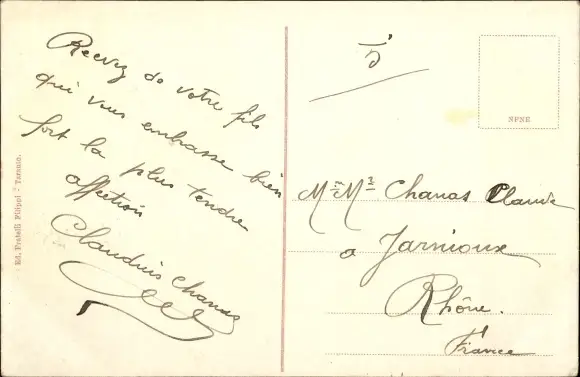 Recevez de votre fils
qui vous embrasse bien
fort la plus tendre
affection
Claudius Chanas
Ed. Fratelli Filippi - Taranto.
5
NPNE
Mr Mme Chanas Claude
a Jarnioux
Rhône.
France